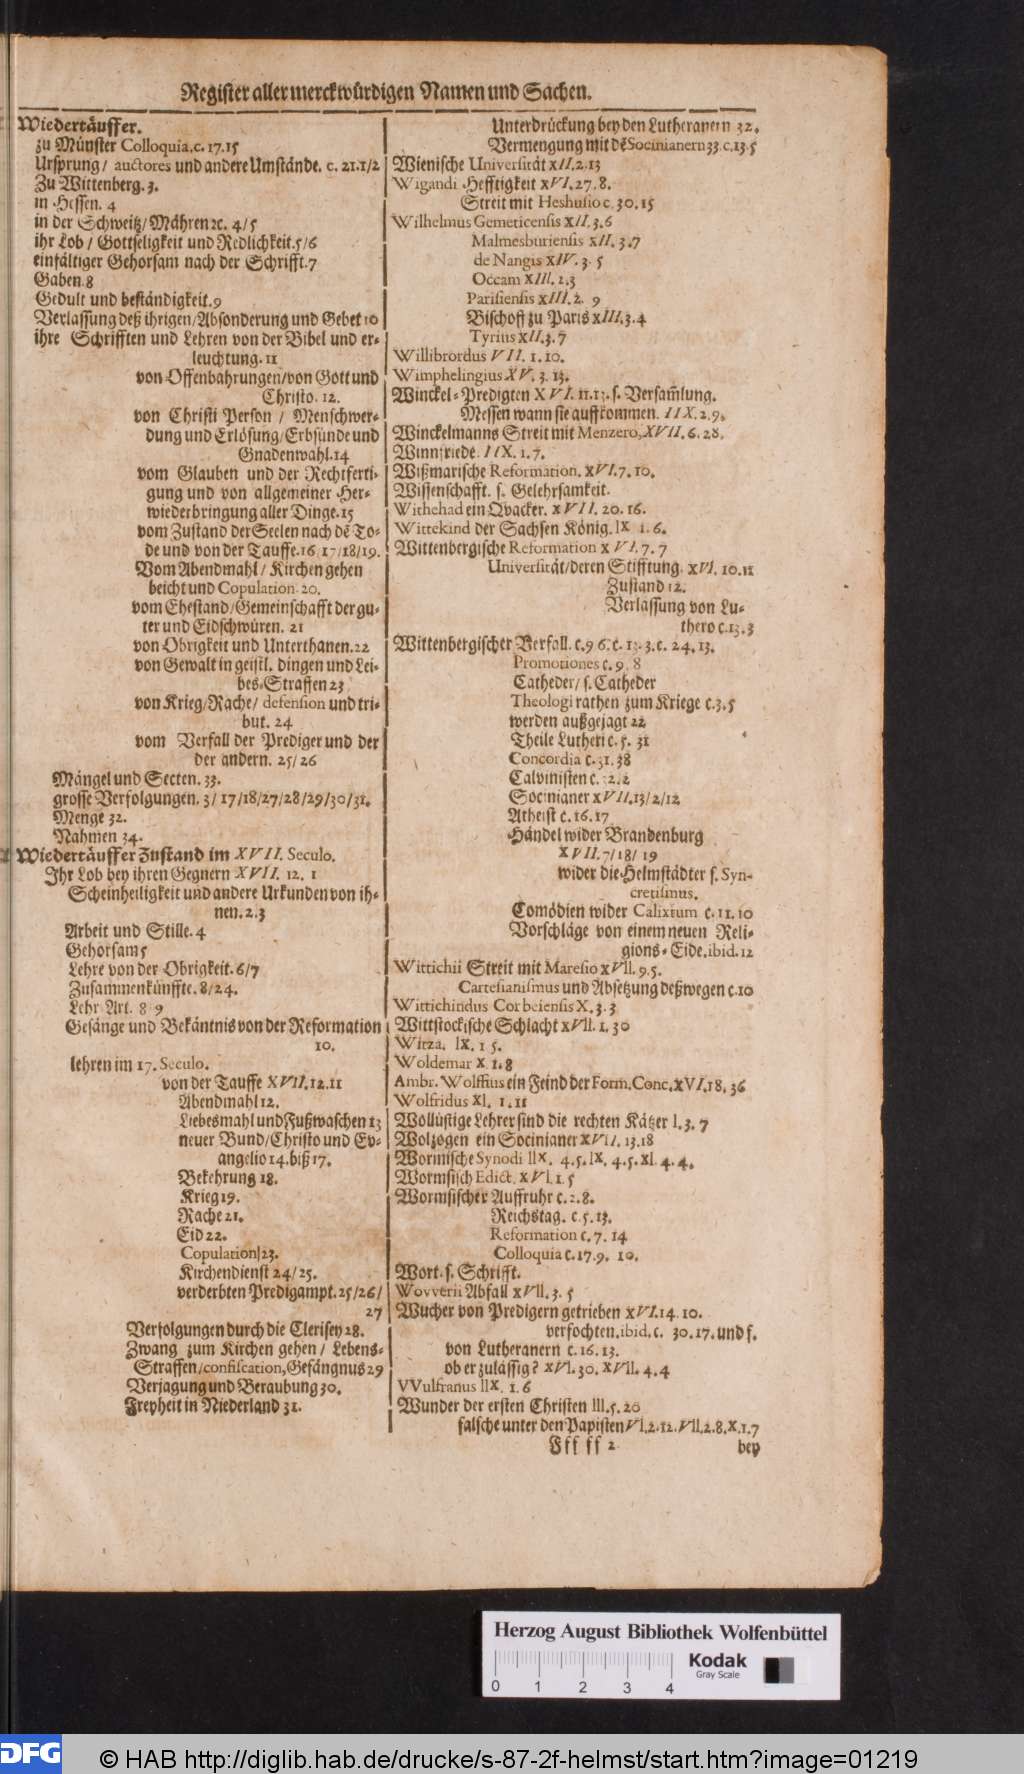 Register aller merckwürdigen Namen und Sachen.
Wiedertäuffer.
zu Münster Colloquia.c. 17.15
Ursprung/ auctores und andere Umstände. c. 21.1/2
Zu Wittenberg. 3.
in Hessen. 4
in der Schweitz/ Mähren ꝛc. 4/5
ihr Lob / Gottseligkeit und Redlichkeit.5/6
einfältiger Gehorsam nach der Schrifft.7
Gaben.8
Gedult und beständigkeit.9
Verlassung deß ihrigen/Absonderung und Gebet 10
ihre Schrifften und Lehren von der Bibel und er-
leuchtung. 11
von Offenbahrungen/von Gott und
Christo. 12.
von Christi Person / Menschwer-
dung und Erlösung/Erbsünde und
Gnadenwahl.14
vom Glauben und der Rechtferti-
gung und von allgemeiner Her-
wiederbringung aller Dinge.15
vom Zustand der Seelen nach dē To-
de und von der Tauffe.16 17/18/19.
Vom Abendmahl / Kirchen gehen
beicht und Copulation. 20.
vom Ehestand/Gemeinschafft der gu-
ter und Eidschwüren. 21
von Obrigkeit und Unterthanen.22
von Gewalt in geistl. dingen und Lei-
bes-Straffen 23
von Krieg/Rache/ defension und tri-
but. 24
vom Verfall der Prediger und der
der andern. 25/26
Mängel und Secten. 33.
grosse Verfolgungen. 3/ 17/18/27/28/29/30/31.
Menge 32.
Nahmen 34.
Wiedertäuffer Zustand im XVII. Seculo.
Ihr Lob bey ihren Gegnern XVII. 12. 1
Scheinheiligkeit und andere Urkunden von ih-
nen. 2.3
Arbeit und Stille. 4
Gehorsam 5
Lehre von der Obrigkeit. 6/7
Zusammenkünffte. 8/24.
Lehr Art. 8 9
Gesänge und Bekäntnis von der Reformation
10.
lehren im 17. Seculo.
von der Tauffe XVII. 12.11
Abendmahl 12.
Liebesmahl und Fußwaschen 13
neuer Bund/Christo und Ev-
angelio 14. biß 17.
Bekehrung 18.
Krieg 19.
Rache 21.
Eid 22.
Copulation 23.
Kirchendienst 24/25.
verderbten Predigampt. 25/26/
27
Verfolgungen durch die Clerisey 28.
Zwang zum Kirchen gehen / Lebens-
Straffen/confiscation, Gefängnus 29
Verjagung und Beraubung 30.
Freyheit in Niederland 31.
Unterdrückung bey den Lutheranern 32.
Vermengung mit dē Socinianern 33. c.13.5
Wienische Universität XII.2.13
Wigandi Hefftigkeit XVI.27.8.
Streit mit Heshusio c. 30.15
Wilhelmus Gemeticensis XII.3.6
Malmesburiensis XII. 3.7
de Nangis XIV. 3. 5
Occam XIII. 2.3
Parisiensis XIII. 2. 9
Bischoff zu Paris XIII.3.4
Tyrius XII.3.7
Willibrordus VII. 1.10.
Wimphelingius XV. 3. 13.
Winckel-Predigten XVI. 11.13. s. Versam̃lung.
Messen wann sie auffkommen. IIX.2.9.
Winckelmanns Streit mit Menzero, XVII. 6.28.
Winnfriede. IIX. 1.7.
Wißmarische Reformation. XVI.7.10.
Wissenschafft. s. Gelehrsamkeit.
Withehad ein Qvacker. XVII. 20.16.
Wittekind der Sachsen König. IX 1.6.
Wittenbergische Reformation XVI. 7. 7
Universität/deren Stifftung. XVI. 10.11
Zustand 12.
Verlassung von Lu-
thero c.13.3
Wittenbergischer Verfall. c.9 6. c. 13. 3. c. 24. 13.
Promotiones c. 9. 8
Catheder/ s. Catheder
Theologi rathen zum Kriege c.3.5
werden außgejagt 22
Theile Lutheri c. 5. 31
Concordia c.31.38
Calvinisten c. 32.2
Socinianer XVII.13/2/12
Atheist c.16.17
Händel wider Brandenburg
XVII.7/18/ 19
wider die Helmstädter s. Syn-
cretismus.
Comödien wider Calixtum c.11.10
Vorschläge von einem neuen Reli-
gions-Eide. ibid.12
Wittichii Streit mit Maresio XVII. 9.5.
Cartesianismus und Absetzung deßwegen c.10
Wittichindus Corbeiensis X. 3.3
Wittstockische Schlacht XVII. 1. 30
Witza. IX. 1 5.
Woldemar X. 1.8
Ambr. Wolffius ein Feind der Form. Conc. XVI.18. 36
Wolfridus XI. 1.11
Wollüstige Lehrer sind die rechten Kätzer I. 3. 7
Wolzogen ein Socinianer XVII. 13.18
Wormische Synodi IIX. 4.5. IX. 4.5. XI. 4.4.
Wormsisch Edict. XVI. 1.5
Wormsischer Auffruhr c.2.8.
Reichstag. c.5.13.
Reformation c. 7. 14
Colloquia c.17.9. 10.
Wort. s. Schrifft.
Wovverii Abfall XVII. 3. 5
Wucher von Predigern getrieben XVI.14.10.
verfochten. ibid. c. 30.17. und s.
von Lutheranern c. 16.13.
ob er zulässig? XVI. 30. XVII. 4.4
VVulfranus IIX. 1.6
Wunder der ersten Christen III.5.20
falsche unter den Papisten VI.2.12. VII.2.8. X.1.7
Fff ff 2
bey
Herzog August Bibliothek Wolfenbüttel
Kodak
Gray Scale
0 1 2 3 4
DFG
© HAB http://diglib.hab.de/drucke/s-87-2f-helmst/start.htm?image=01219